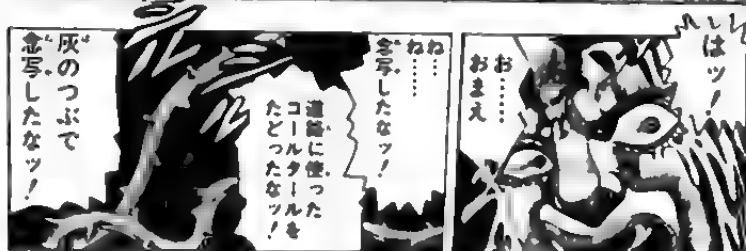 はッ!
お……
おまえ
ね…
ね……
念写したなッ!
道路に使った
コールタールを
たどったなッ!
灰のつぶで
念写したなッ!